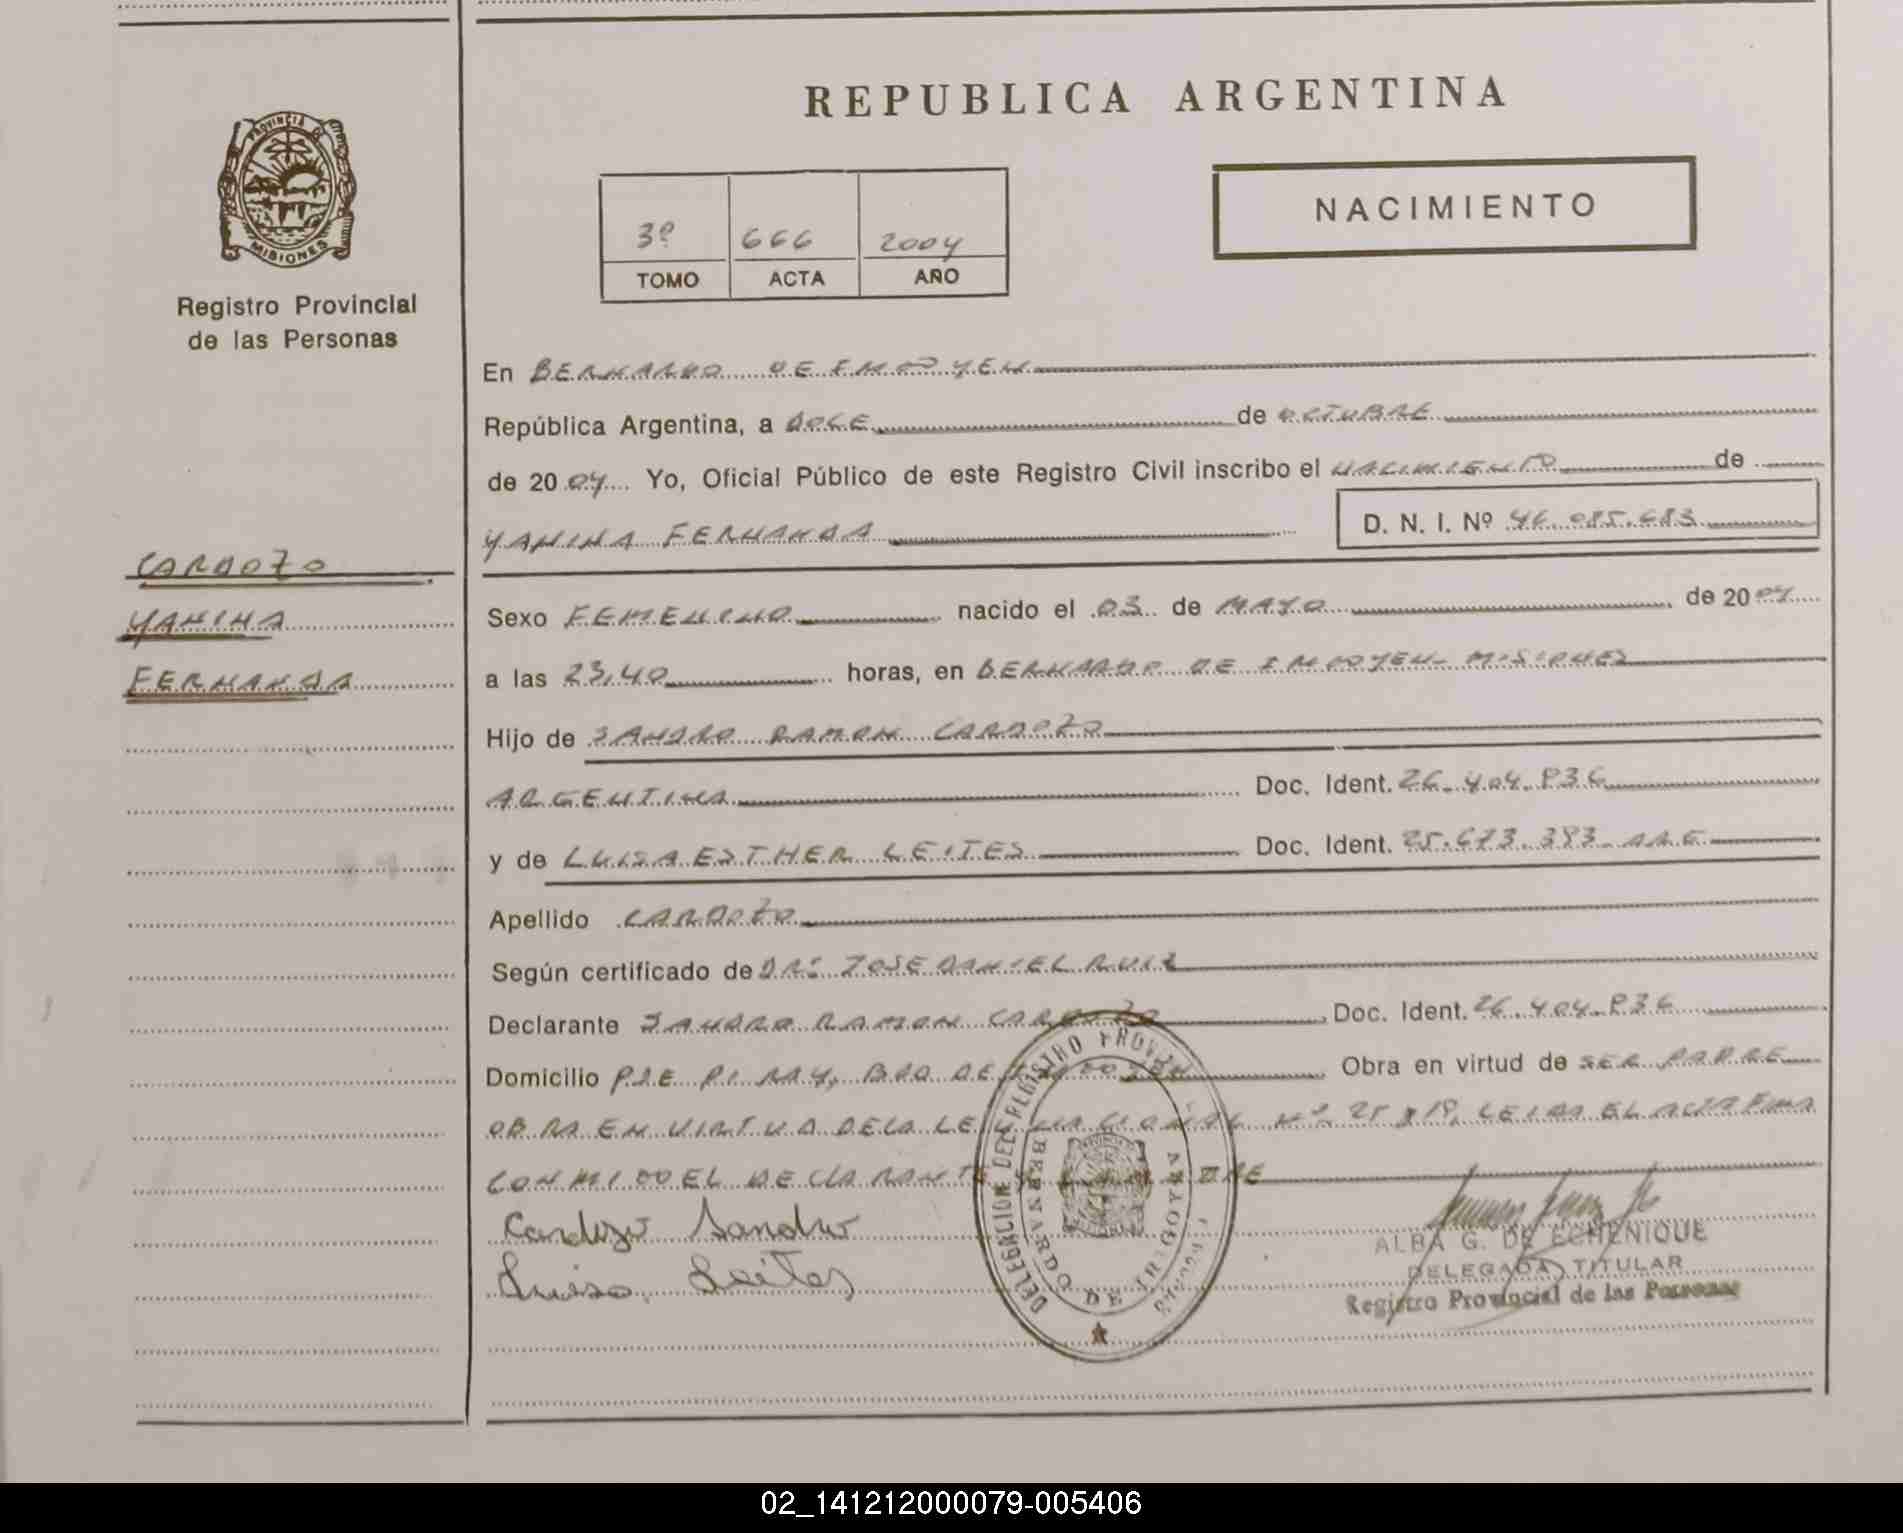 REPUBLICA ARGENTINA
PROVINCIA DE
MISIONES
Registro Provincial
de las Personas
NACIMIENTO
3º 666 2004
TOMO ACTA AÑO
En BERNARDO DE IRIGOYEN
República Argentina, a DOCE de OCTUBRE
de 2004 Yo, Oficial Público de este Registro Civil inscribo el NACIMIENTO de
YANINA FERNANDA D. N. I. Nº 46.085.683
CARDOZO
YANINA
FERNANDA
Sexo FEMENINO nacido el 03 de MAYO de 2004
a las 23,40 horas, en BERNARDO DE IRIGOYEN - MISIONES
Hijo de SANDRO RAMON CARDOZO
ARGENTINA Doc. Ident. 26.404.836
y de LUISA ESTHER LEITES Doc. Ident. 25.673.383 - ARG
Apellido CARDOZO
Según certificado de DR: JOSE DANIEL RUIZ
Declarante SANDRO RAMON CARDOZO Doc. Ident. 26.404.836
Domicilio PJE PI RAY, BDO DE IRIGOYEN Obra en virtud de SER PADRE
OBRA EN VIRTUD DE LA LEY NACIONAL Nº 25 LEIDA EL ACTA FIRMA
CONMIGO EL DECLARANTE Y LA MADRE
Cardozo Sandro
Luisa Leites
DELEGACION DEL REGISTRO PROVINCIAL
BERNARDO DE IRIGOYEN
ALBA G. DE ECHENIQUE
DELEGADA TITULAR
Registro Provincial de las Personas
02_141212000079-005406